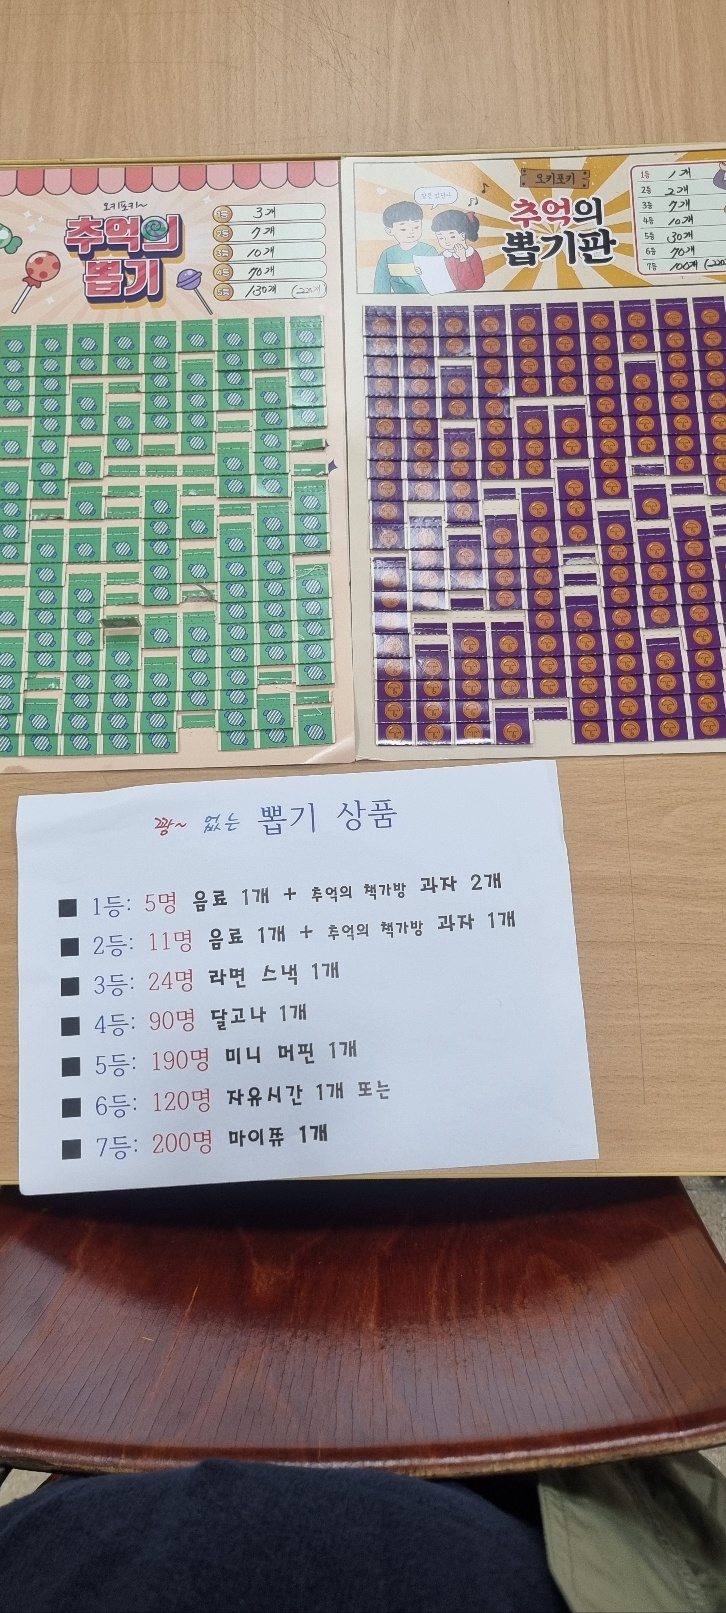 오키포키~
추억의
뽑기
1등 3개
2등 7개
3등 10개
4등 70개
5등 130개 (220개)
오키포키
추억의
뽑기판
1등 1개
2등 2개
3등 7개
4등 10개
5등 30개
6등 70개
7등 100개
꽝~ 없는 뽑기 상품
■ 1등: 5명 음료 1개 + 추억의 책가방 과자 2개
■ 2등: 11명 음료 1개 + 추억의 책가방 과자 1개
■ 3등: 24명 라면 스낵 1개
■ 4등: 90명 달고나 1개
■ 5등: 190명 미니 머핀 1개
■ 6등: 120명 자유시간 1개 또는
■ 7등: 200명 마이쮸 1개